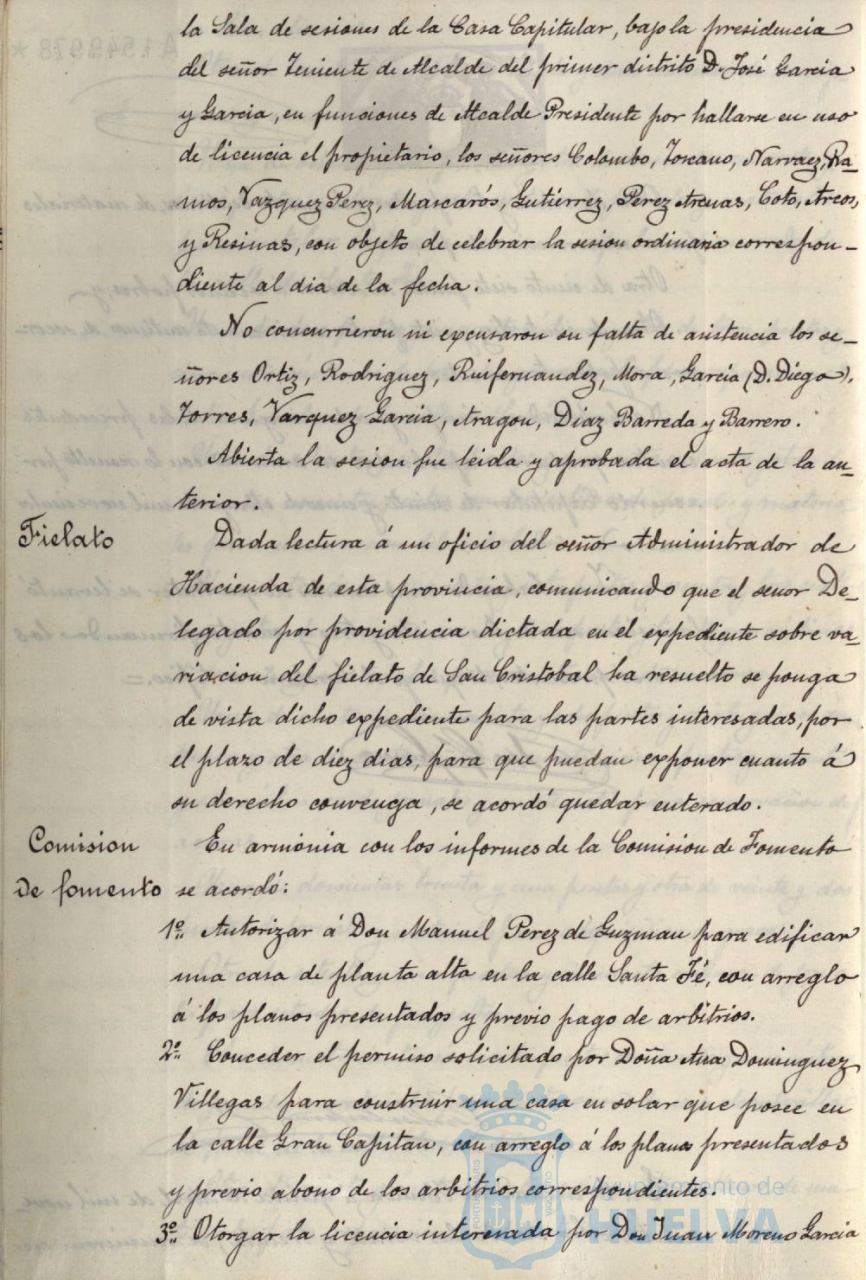 la Sala de sesiones de la Casa Capitular, bajo la presidencia
del señor Teniente de Alcalde del primer distrito D. José Garcia
y Garcia, en funciones de Alcalde Presidente por hallarse en uso
de licencia el propietario, los señores Colombo, Toscano, Narvaez, Ra-
mos, Vazquez Perez, Mascarós, Gutiérrez, Perez Arenas, Coto, Arcos,
y Resinas, con objeto de celebrar la sesion ordinaria correspon-
diente al dia de la fecha.
No concurrieron ni excusaron su falta de asistencia los se-
ñores Ortiz, Rodriguez, Ruifernandez, Mora, Garcia (D. Diego),
Torres, Vazquez Garcia, Aragon, Diaz Barreda y Barrero.
Abierta la sesion fue leida y aprobada el acta de la an-
terior.
Fielato
Dada lectura á un oficio del señor Administrador de
Hacienda de esta provincia, comunicando que el senor De-
legado por providencia dictada en el expediente sobre va-
riacion del fielato de San Cristobal ha resuelto se ponga
de vista dicho expediente para las partes interesadas, por
el plazo de diez dias, para que puedan exponer cuanto á
su derecho convenga, se acordó quedar enterado.
Comision
de fomento
En armonia con los informes de la Comision de Fomento
se acordó:
1º. Autorizar á Don Manuel Perez de Guzman para edificar
una casa de planta alta en la calle Santa Fé, con arreglo
á los planos presentados y previo pago de arbitrios.
2º. Conceder el permiso solicitado por Doña Ana Dominguez
Villegas para construir una casa en solar que posee en
la calle Gran Capitan, con arreglo á los planos presentados
y previo abono de los arbitrios correspondientes.
3º. Otorgar la licencia interesada por Don Juan Moreno Garcia
Ayuntamiento de
HUELVA